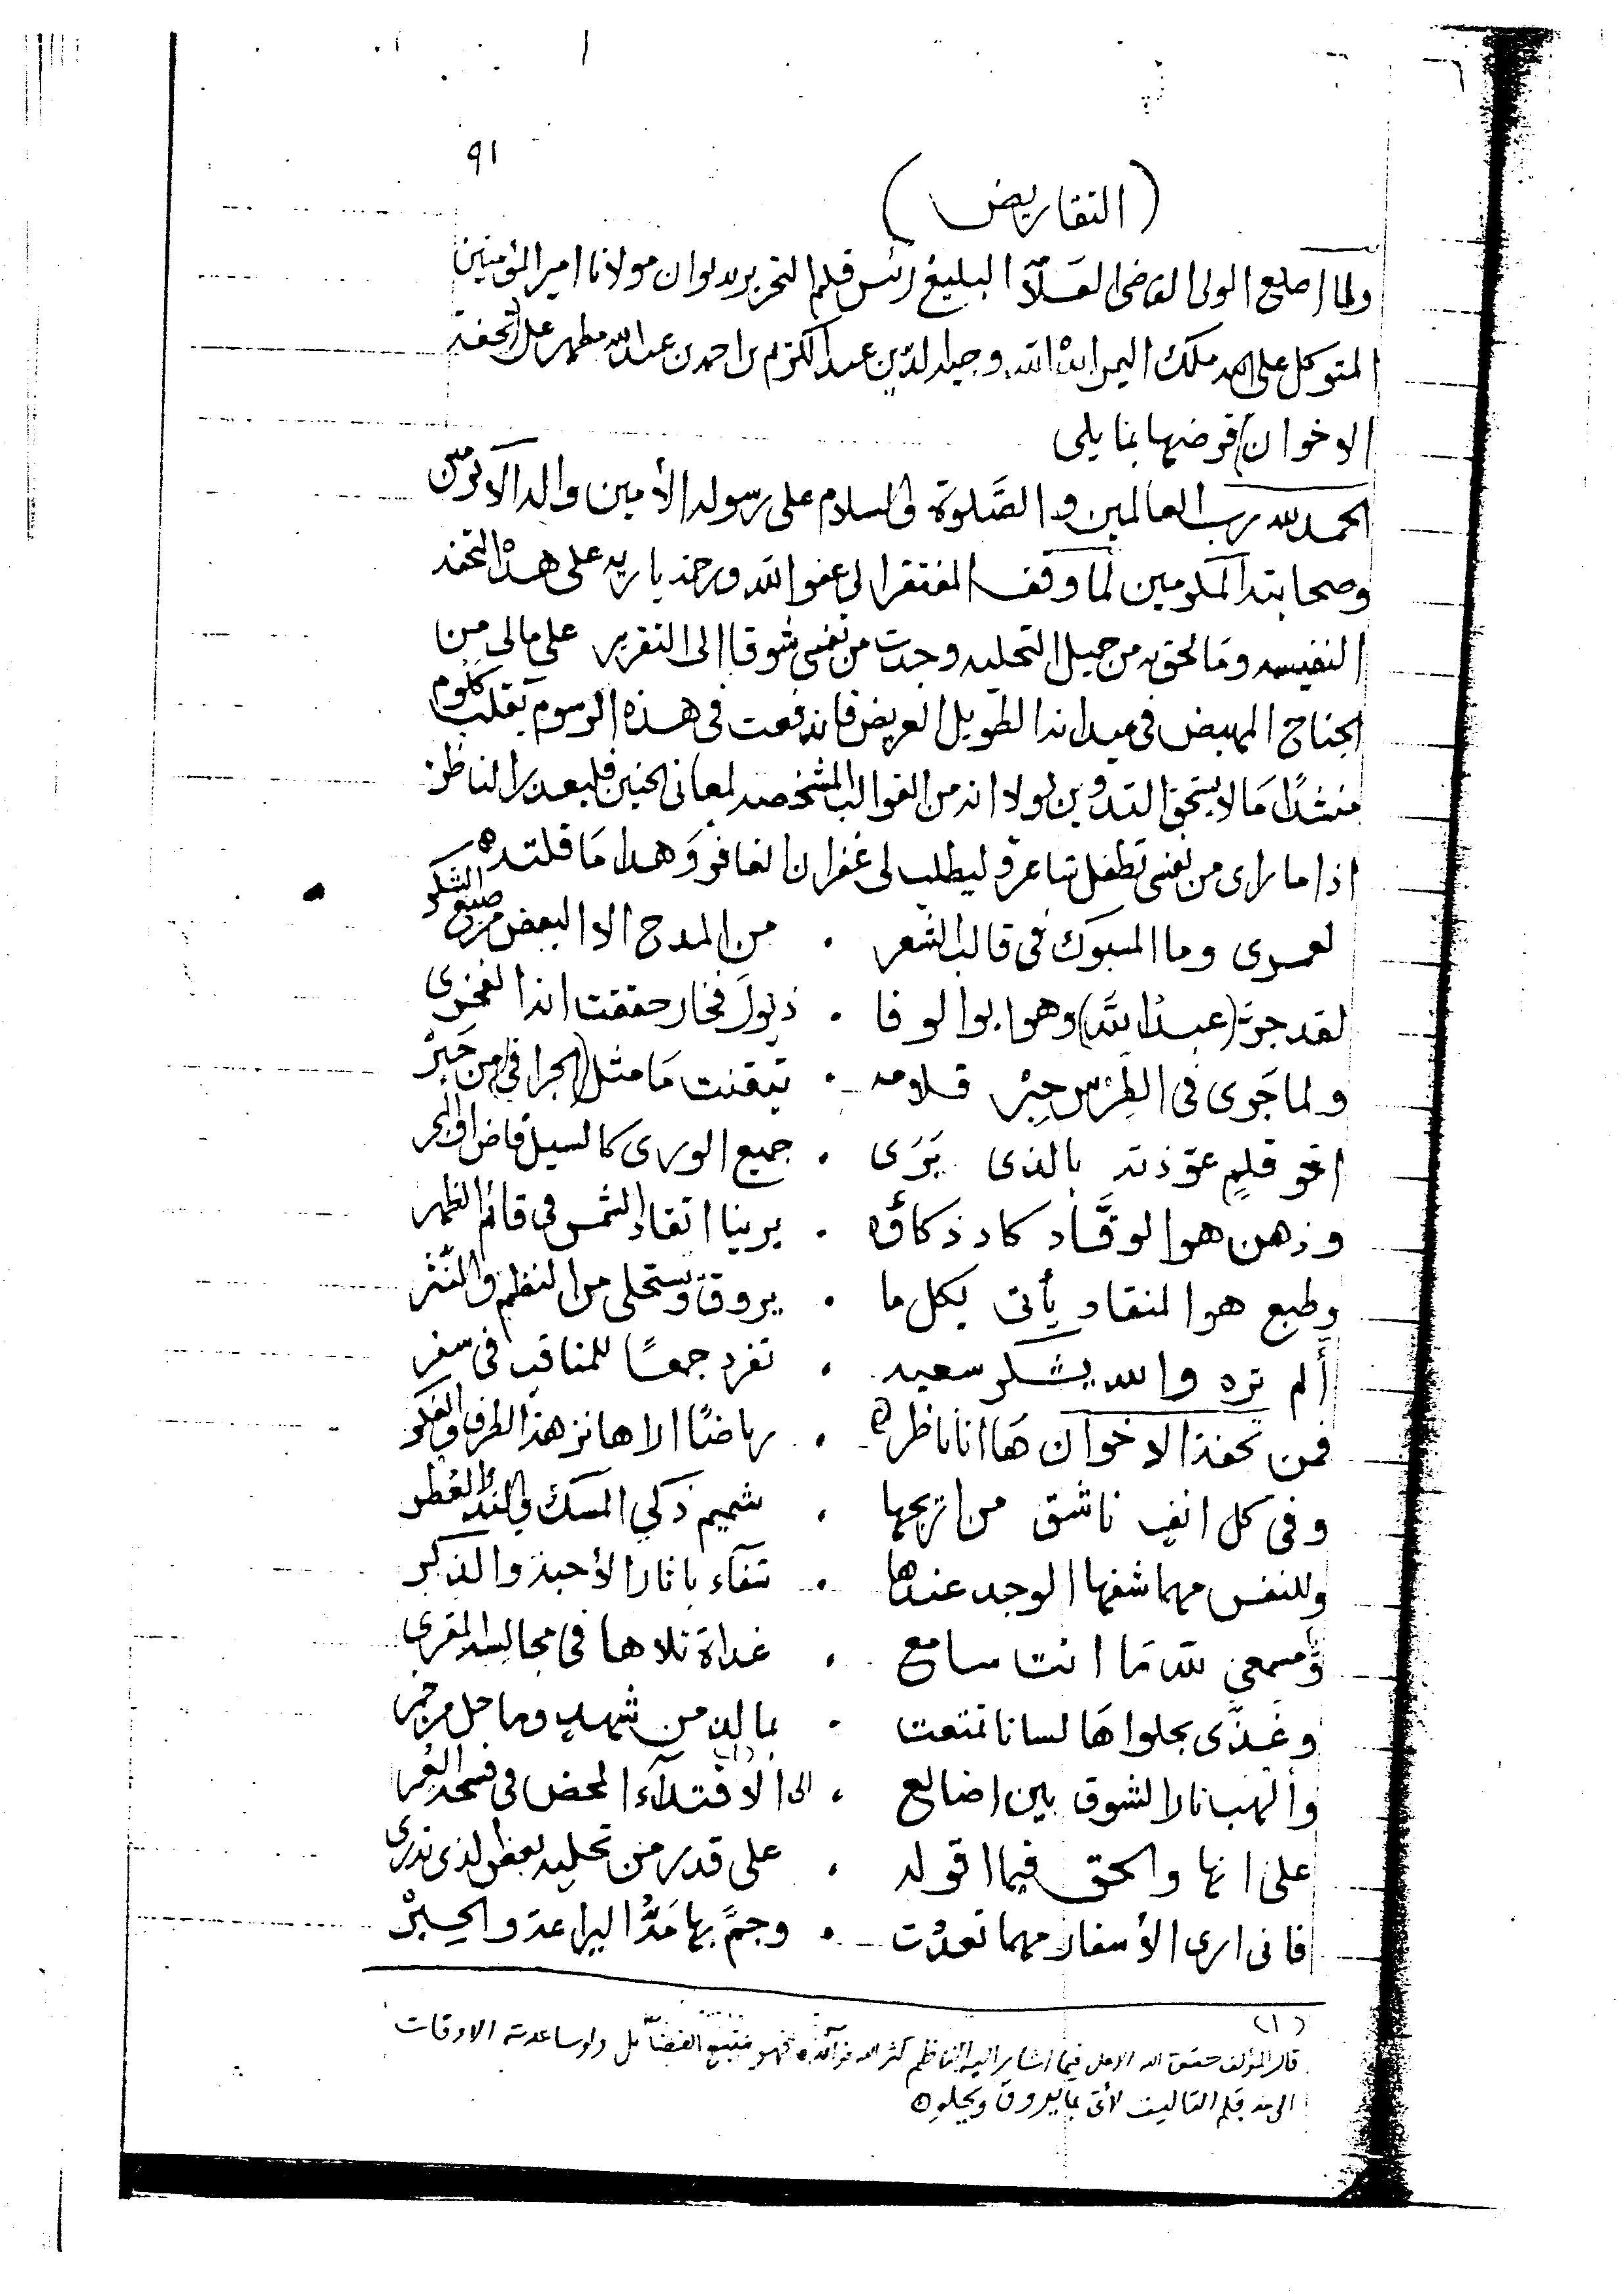 ٩١
(التقاريض)
ولما اطلع الولي القاضي العلّامة البليغ رئيس قلم التحرير بديوان مولانا امير المؤمنين
المتوكل على الله ملك اليمن ايده الله وجيه الدين عبد الكريم بن احمد بن عبد الله مطهر على (تحفة
الاخوان) قرضها بما يلي
الحمد لله رب العالمين والصَّلوة والسلام على رسوله الأمين واله الاكرمين
وصحابته المكرمين لما وقف المفتقر الى عفو الله ورحمة باريه على هذه التحفه
النفيسه وما لحق به من جميل التحليه وجدت من نفسي شوقا الى التقرير على مالي من
الجناح المهيض في ميدانه الطويل العريض فاندفعت في هذه الرسوم بقلب كلوم
منشدًا مَا لا يستحق التدوين لولا انه من القوالب المشخصه لمعاني الحنين فليعذر الناظر
اذا ما راى من نفسي تطفل شاعر وليطلب لي غفران الغافر وَهذا مَا قلته
لعمري وما المسبوك في قالب الشعر . من المدح الا البعض من صيغ الشكر
لقد جرّ (عبدُ اللَّه) وهو ابو الوفا . ذيولَ فخار حققت انه الفخري
ولما جَرى في الطِرْس حِبْر قلامه . تيقنت مَا مثل (الجرافي) من حَبِرْ
اخو قلمٍ عوّذته بالذي يَرَى . جميع الورى كالسيل فاض او البحر
وذهن هو الوقَّاد كاد ذكاؤه . يرينا اتقاد الشمس في قائم الظهر
وطبع هو المنقاد يأتي بكل ما . يروق ويستحلى من النظم والنَّثر
أَلم تره والله يشكر سعيه . تفرد جمعًا للمناقب في سفر
فمن تحفة الاخوان هَا انا ناظره . رياضًا الا ها نزهة الطرف والفكر
وفي كل انفٍ ناشق من اريجها . شميم ذكي المسك والند والعطر
وللنفس مهما شفها الوجد عندها . شفآء باثار الأحبة والذكر
وَمسمعي لله مَا انت سامع . غداة تلاها في مجالسه المقري
وغذّى بحلواهَا لسانا تمتعت . بما لذ من شهدٍ وما حل من خمر
وألهب نار الشوق بين اضالع . الى الاقتدآء المحض في فسحة العُمر (١)
على انها والحق فيما اقوله . على قدر من تحليه بعض الذي ندري
فاني ارى الأسفار مهما تعدّدت . وجمَّ بها مَدُّ اليراعة والحبرْ
(١)
قال المؤلف حقق الله الامل فيما اشار اليه الناظم كثر الله فوآئده فهو منبع الفضآئل ولو ساعدته الاوقات
الى مد قلم التاليف لأتى بما يروق ويحلو